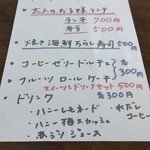 大人のお子様ランチ
ランチ 700円
弁当 500円
焼き海鮮ちらし寿司 500円
コーヒーゼリードルチェ
フルーツロールケーキ
各300円
スイーツとドリンクセット 500円
ドリンク 各300円
ハニーレモネード
水だしコーヒー
ハニー梅スカッシュ
ジュース